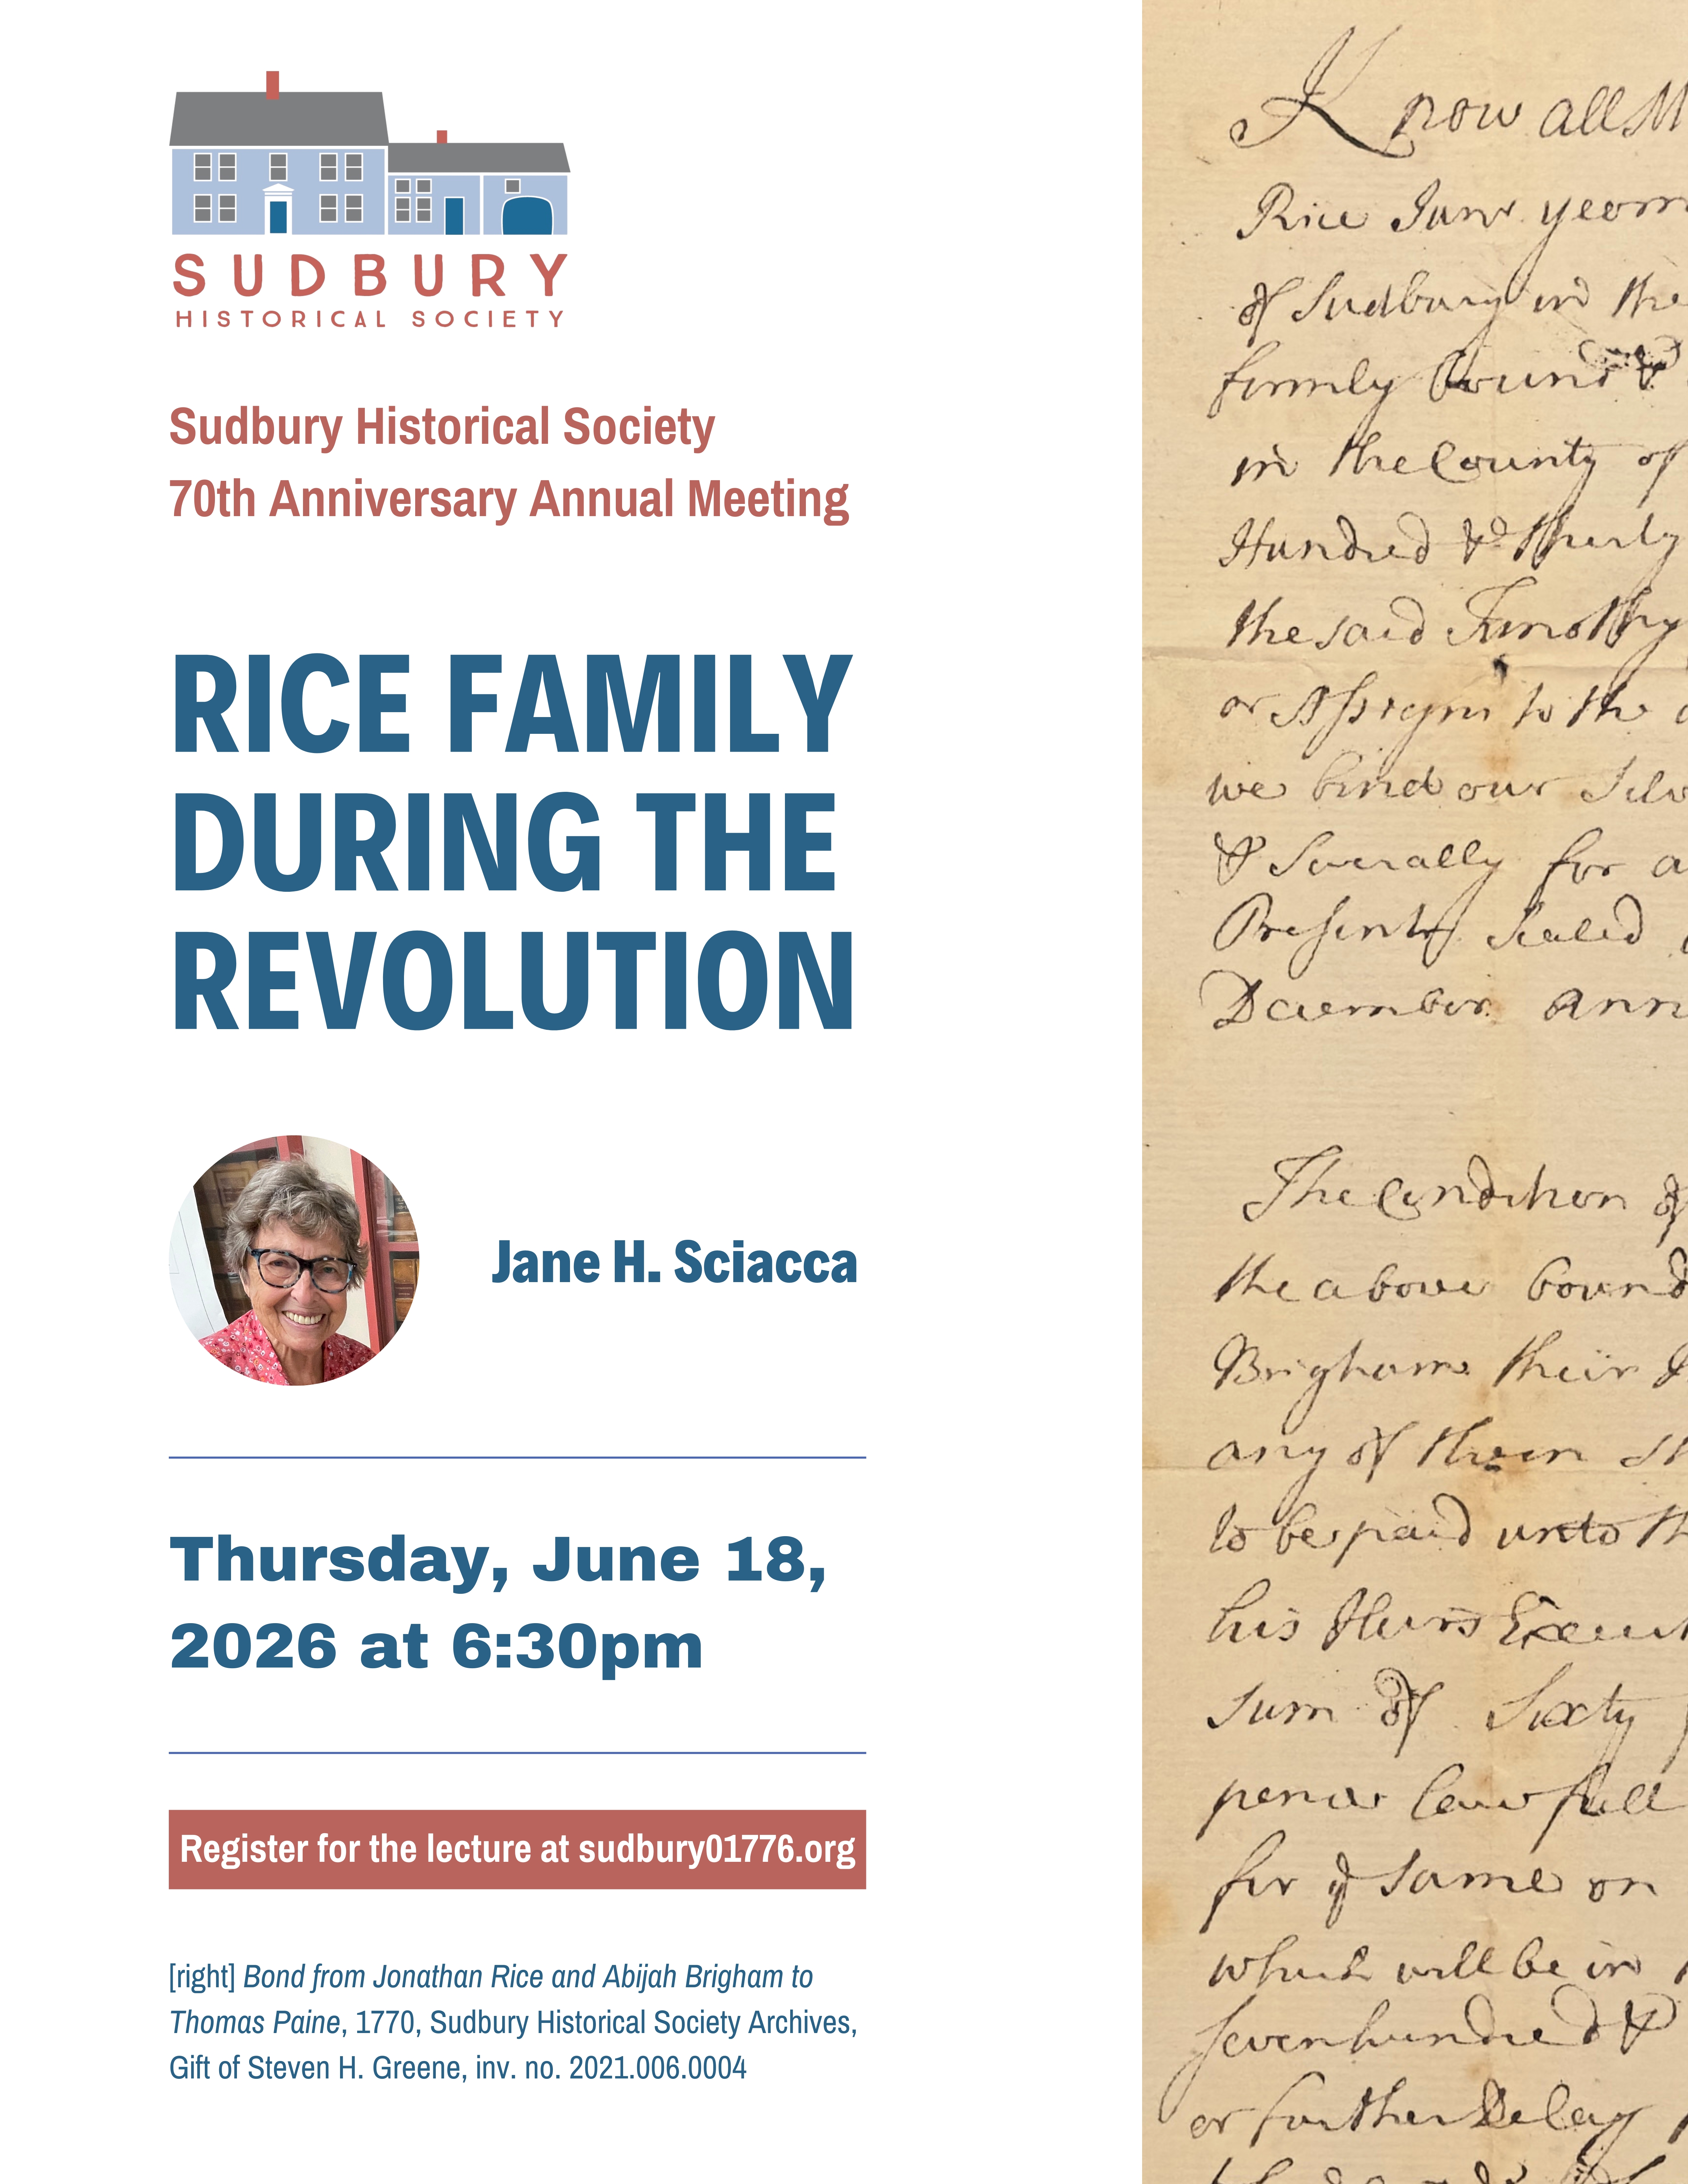 SUDBURY
HISTORICAL SOCIETY
Sudbury Historical Society
70th Anniversary Annual Meeting
RICE FAMILY
DURING THE
REVOLUTION
Jane H. Sciacca
Thursday, June 18,
2026 at 6:30pm
Register for the lecture at sudbury01776.org
[right] Bond from Jonathan Rice and Abijah Brigham to
Thomas Paine, 1770, Sudbury Historical Society Archives,
Gift of Steven H. Greene, inv. no. 2021.006.0004
Know all M
Rice Junr yeom
of Sudbury in the
firmly bound &
in the County of
Hundred & thirty
the said Timothy
or Assigns to the
we bind our Selv
& Severally for a
Presents Sealed
December Ann
The Condition of
the above bound
Brigham their
any of them sh
to be paid unto th
his Heirs Execut
sum of Sixty
pence lawfull
for ye same on
which will be in
sevenhundred &
or further Delay